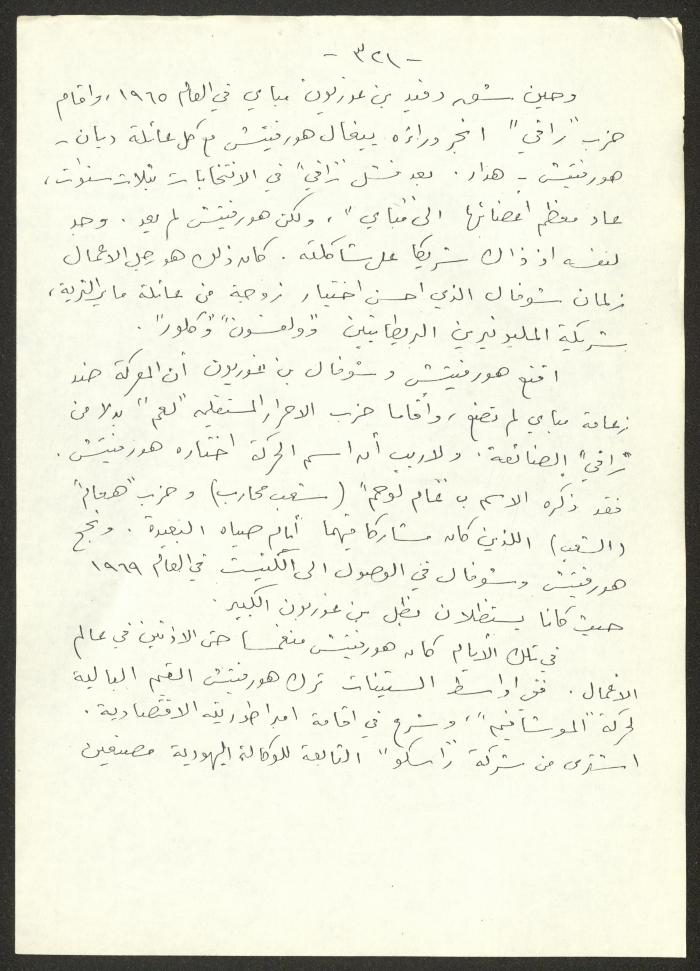 - ٣٢١ -
وحين شق دفيد بن غوريون مباي في العام ١٩٦٥، واقام
حزب "رافي" انجر وراءه ييغال هورفيتش مع كل عائلة ديان -
هورفتيش - هدار. بعد فشل "رافي" في الانتخابات بثلاث سنوات،
عاد معظم أعضائها الى "مباي"، ولكن هورفتيش لم يعد. وجد
لنفسه اذ ذاك شريكا على شاكلته. كان ذلك هو رجل الاعمال
زلمان شوفال الذي احسن اختيار زوجة من عائلة ماير الثرية،
شريكة المليونيرين البريطانيين "وولفسون" و"كلور".
اقنع هورفتيش وشوفال بن غوريون أن المعركة ضد
زعامة مباي لم تضع، وأقاما حزب الاحرار المستقلين "لعم" بدلا من
"رافي" الضائعة. ولا ريب أن اسم الحركة اختاره هورفتيش.
فقد ذكره الاسم ب "عام لوحم" (شعب محارب) وحزب "هعام"
(الشعب) اللذين كان مشاركا فيهما أيام صباه البعيدة. ونجح
هورفتيش وشوفال في الوصول الى الكنيست في العام ١٩٦٩
حيث كانا يستظلان بظل بن غوريون الكبير.
في تلك الأيام كان هورفتيش منغمسا حتى الاذنين في عالم
الاعمال. ففي اواسط الستينات ترك هورفتيش القيم البالية
لحركة "الموشافيم"، وشرع في اقامة امبراطوريته الاقتصادية.
اشترى من شركة "راسكو" التابعة للوكالة اليهودية مصنعين